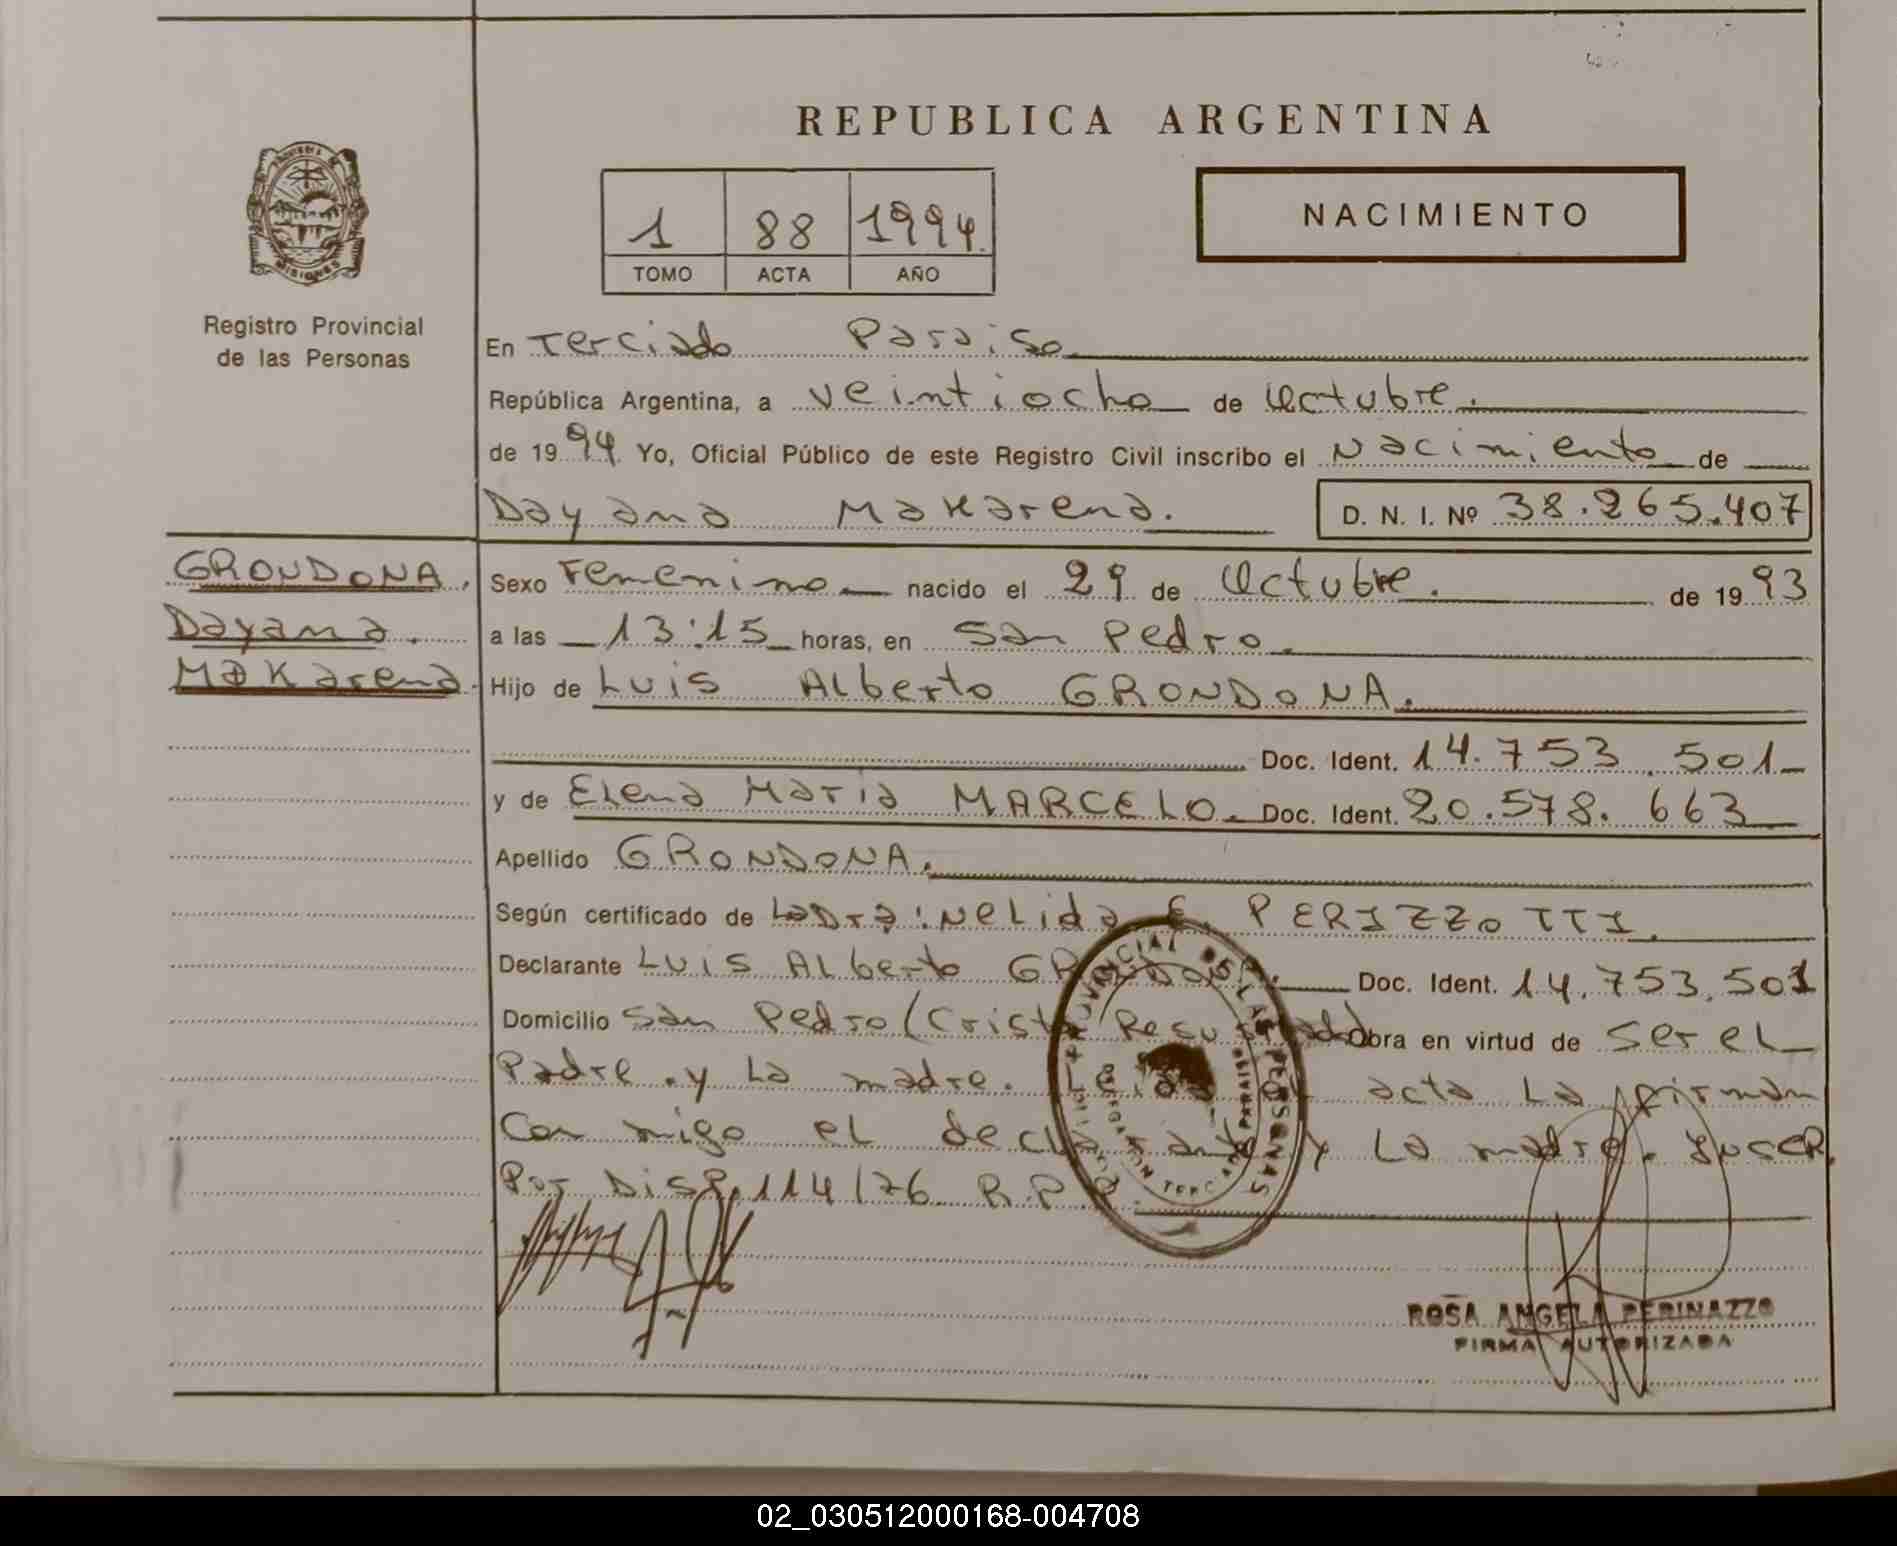 REPUBLICA ARGENTINA
1 88 1994
TOMO ACTA AÑO
NACIMIENTO
PROVINCIA DE
MISIONES
Registro Provincial
de las Personas
En Terciado Paraiso
República Argentina, a veintiocho de Octubre.
de 1994. Yo, Oficial Público de este Registro Civil inscribo el Nacimiento de
Dayana Makarena. D. N. I. Nº 38.265.407
GRONDONA,
Dayana.
Makarena
Sexo Femenino nacido el 29 de Octubre. de 1993
a las 13:15 horas, en San Pedro.
Hijo de Luis Alberto GRONDONA.
Doc. Ident. 14.753.501
y de Elena Maria MARCELO. Doc. Ident. 20.578.663
Apellido GRONDONA.
Según certificado de La Dra: Nelida E. PERIZZOTTI.
Declarante Luis Alberto Doc. Ident. 14.753.501
Domicilio San Pedro (Cristo Resucitado) Obra en virtud de ser el
Padre y La madre. Leida el acta La firman
Con migo el declarante y La madre. Inscr.
Por Disp. 114/76 R.P.P.
PROVINCIAL DE LAS PERSONAS
ROSA ANGELA PERINAZZO
FIRMA AUTORIZADA
02_030512000168-004708